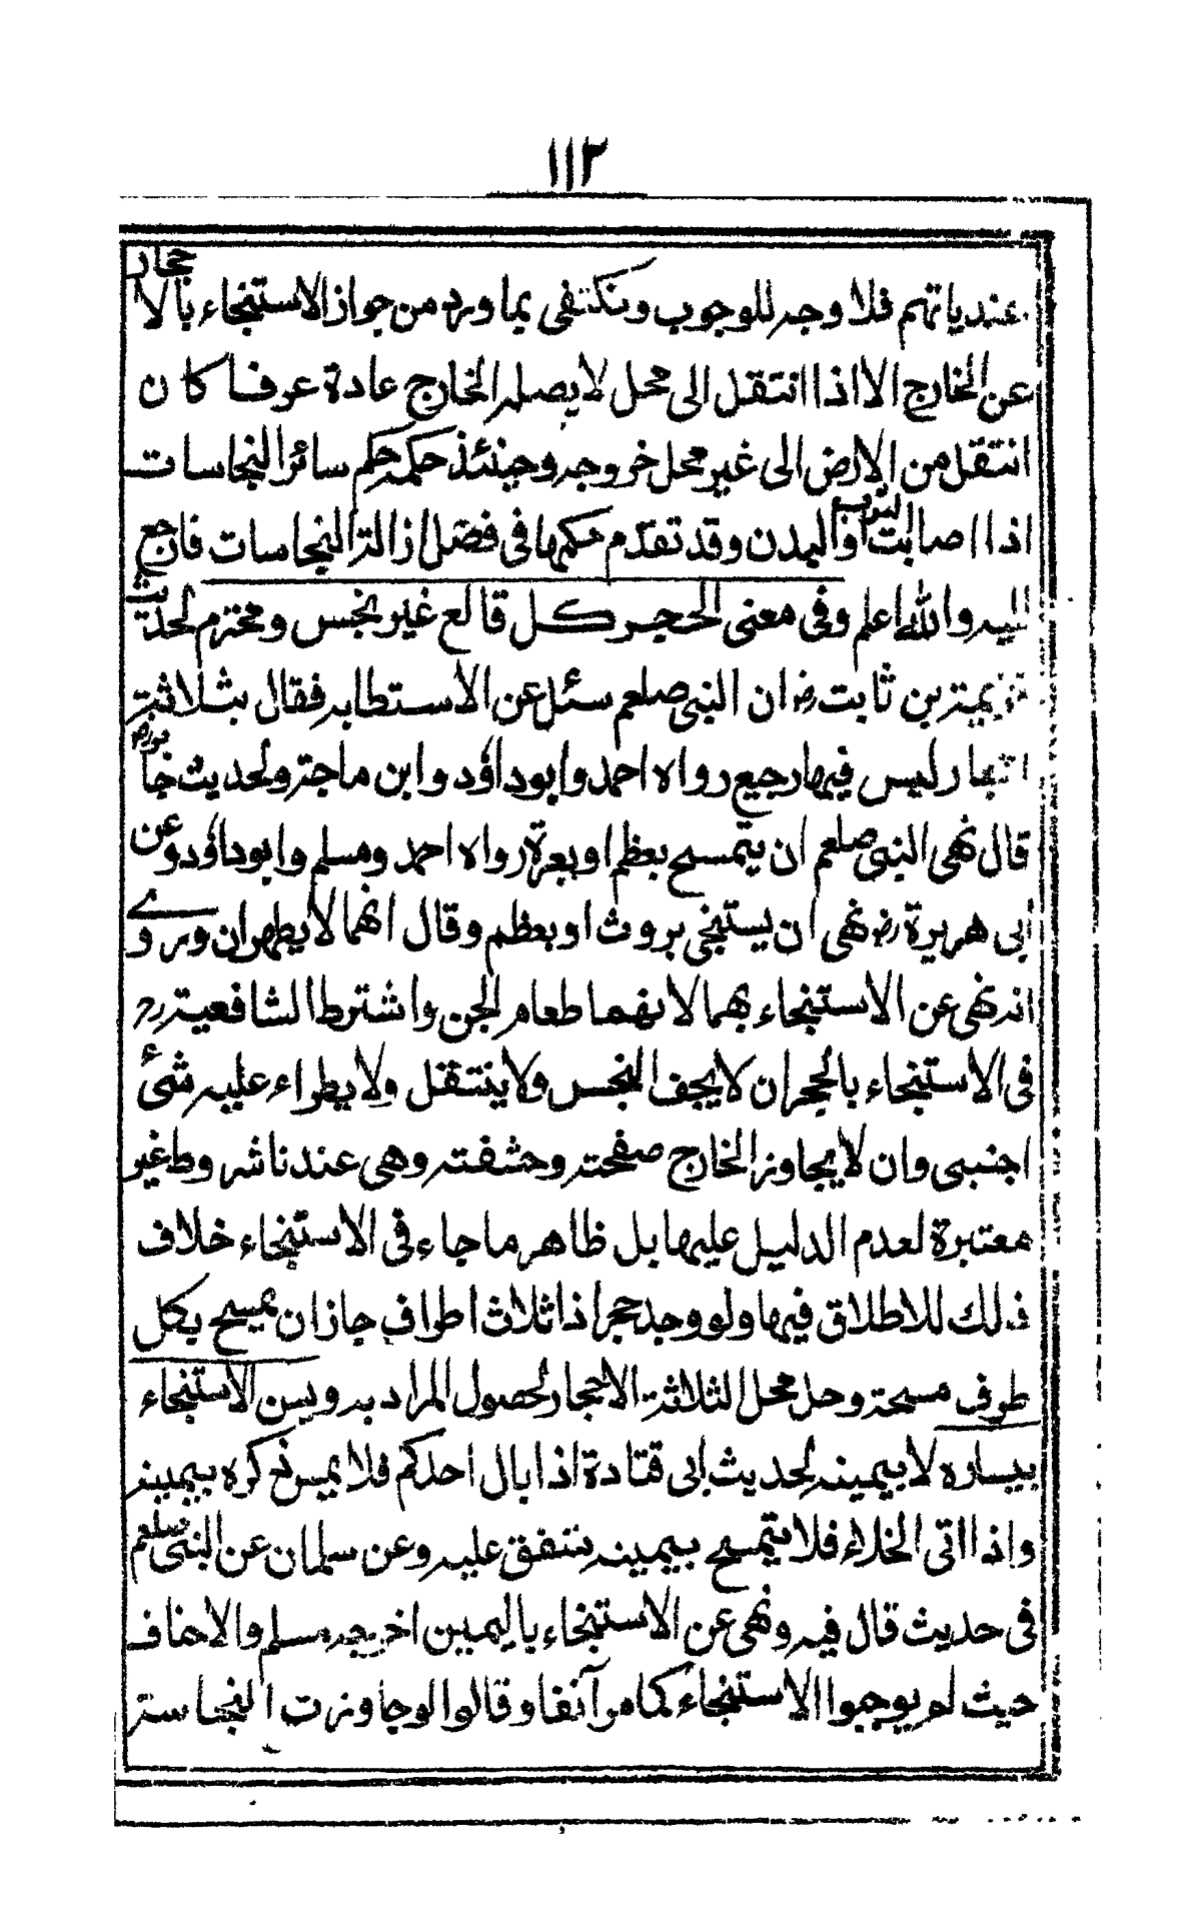 ١١٢
عندياتهم فلا وجه للوجوب ونكتفى بما ورد من جواز الاستنجاء بالاحجار
عن الخارج الا اذا انتقل الى محل لا يصله الخارج عادة عرفا كان
انتقل من الارض الى غير محل خروجه وحينئذ حكمه حكم سائر النجاسات
اذا اصابت الثوب او البدن وقد تقدم حكمها فى فضل ازالة النجاسات فارجع
اليه والله اعلم وفى معنى الحجر كل قالع غير نجس ومحترم لحديث
خزيمة بن ثابت رض ان النبى صلعم سئل عن الاستطابه فقال بثلاثة
احجار ليس فيها رجيع رواه احمد وابوداؤد وابن ماجة ولحديث جابر رض
قال نهى النبى صلعم ان يتمسح بعظم او بعرة رواه احمد ومسلم وابوداؤد وعن
ابى هريرة رض نهى ان يستنجى بروث او بعظم وقال انهما لا يطهران وروى
انه نهى عن الاستنجاء بهما لانهما طعام الجن واشترط الشافعية رح
فى الاستنجاء بالحجر ان لا يجف النجس ولا ينتقل ولا يطراء عليه شئ
اجنبى وان لا يجاوز الخارج صفحته وحشفته وهى عندنا شروط غير
معتبرة لعدم الدليل عليها بل ظاهر ما جاء فى الاستنجاء خلاف
ذلك للاطلاق فيها ولو وجد حجرا ذا ثلاث اطراف جاز ان يمسح بكل
طرف مسحة وحل محل الثلاثة الاحجار لحصول المراد به ويسن الاستنجاء
بيساره لا بيمينه لحديث ابى قتادة اذا بال احدكم فلا يمس ذكره بيمينه
واذا اتى الخلاء فلا يتمسح بيمينه متفق عليه وعن سلمان عن النبى صلعم
فى حديث قال فيه ونهى عن الاستنجاء باليمين اخرجه مسلم والاحناف
حيث لم يوجبوا الاستنجاء كما مر آنفا وقالوا لو جاوزت النجاسة